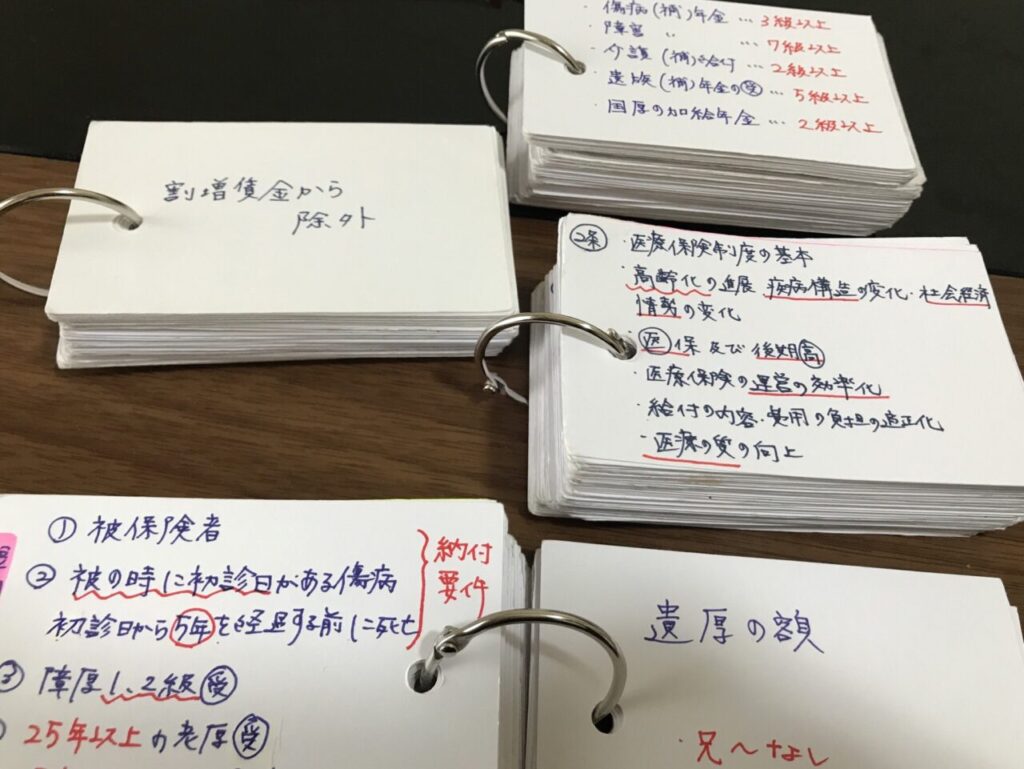 ・傷病(補)年金 … 3級以上
・障害 〃 … 7級以上
・介護(補)給付 … 2級以上
・遺族(補)年金の㊝ … 5級以上
・国厚の加給年金 … 2級以上
割増賃金から
除外
2条
・医療保険制度の基本
・高齢化の進展 疾病構造の変化・社会経済
情勢の変化
・医保 及び 後期高
・医療保険の運営の効率化
・給付の内容・費用の負担の適正化
・医療の質の向上
① 被保険者
② 被の時に初診日がある傷病
初診日から5年を経過する前に死亡
納付
要件
③ 障厚1、2級 受
25年以上の老厚 受
遺厚の額
・兄〜なし